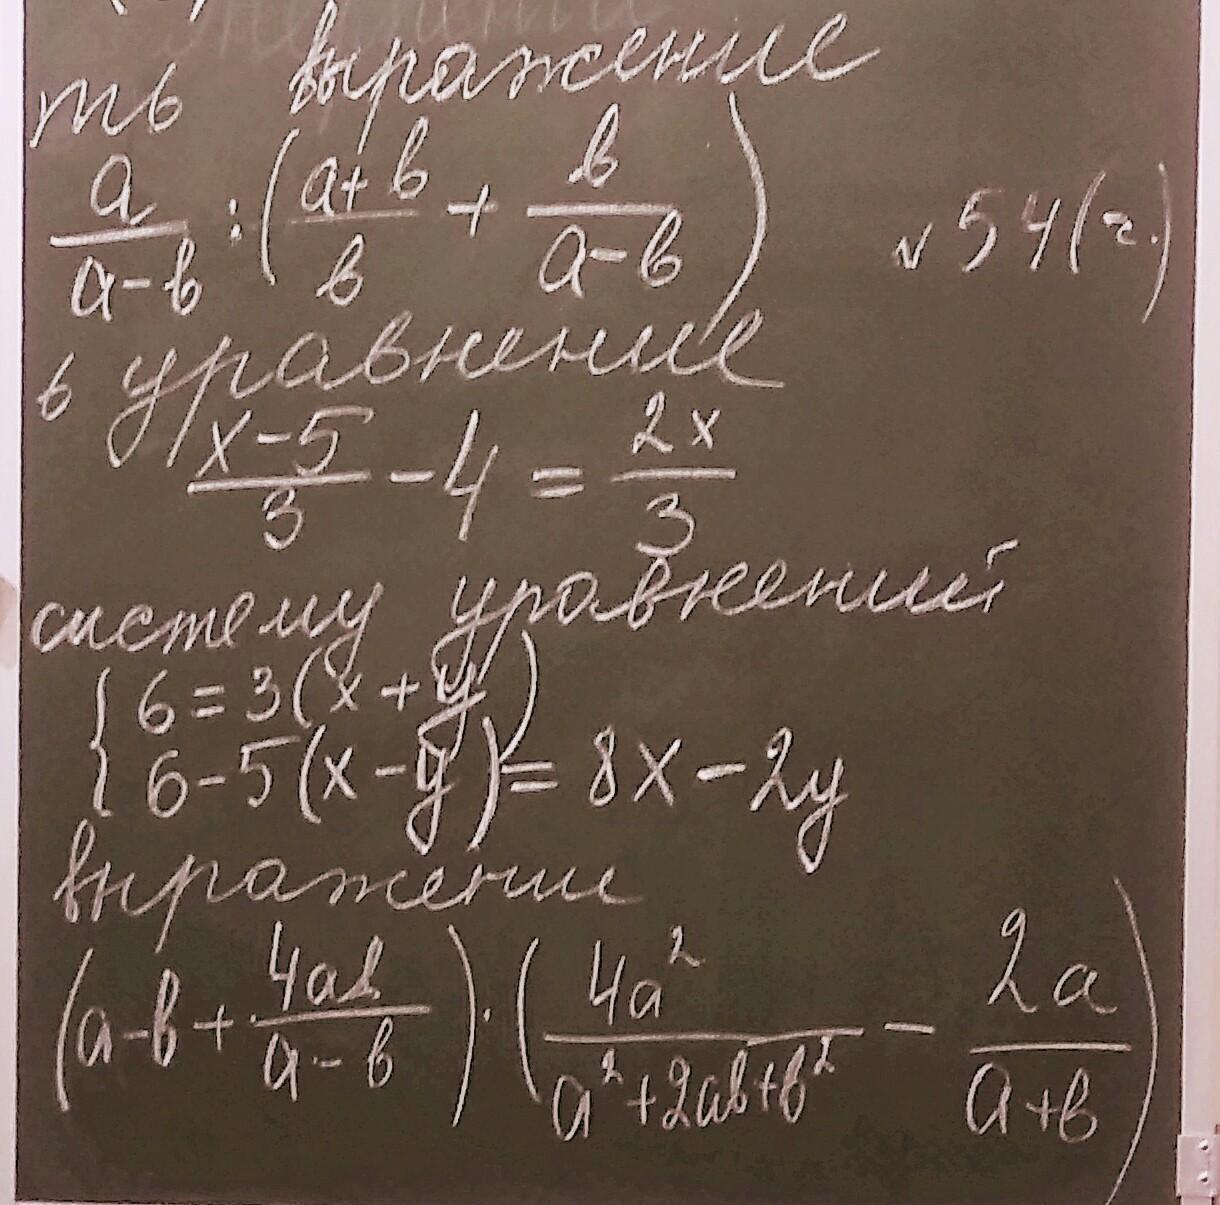 ть выражение
a/(a-b) : ((a+b)/b + b/(a-b)) √54(2.)
ь уравнение
(x-5)/3 - 4 = 2x/3
систему уравнений
{ 6=3(x+y)
{ 6-5(x-y)=8x-2y
выражени
(a-b+4ab/(a-b))·(4a²/(a²+2ab+b²) - 2a/(a+b))